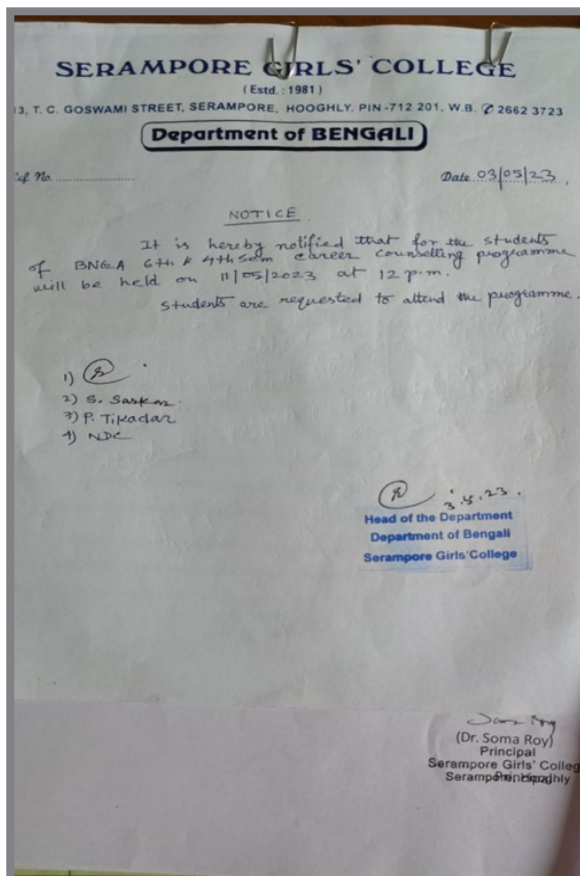 SERAMPORE GIRLS' COLLEGE
(Estd. : 1981)
13, T. C. GOSWAMI STREET, SERAMPORE, HOOGHLY. PIN -712 201. W.B. ✆ 2662 3723
Department of BENGALI
ef. No. ........................ Date 03/05/23
NOTICE
It is hereby notified that for the students
of BNGA 6th & 4th Sem career counselling programme
will be held on 11/05/2023 at 12 p.m.
Students are requested to attend the programme.
1)
2) S. Sarkar
3) P. Tikadar
4) NDC
3.5.23.
Head of the Department
Department of Bengali
Serampore Girls' College
Soma Roy
(Dr. Soma Roy)
Principal
Serampore Girls' Colleg
Serampore, Hooghly
Principal